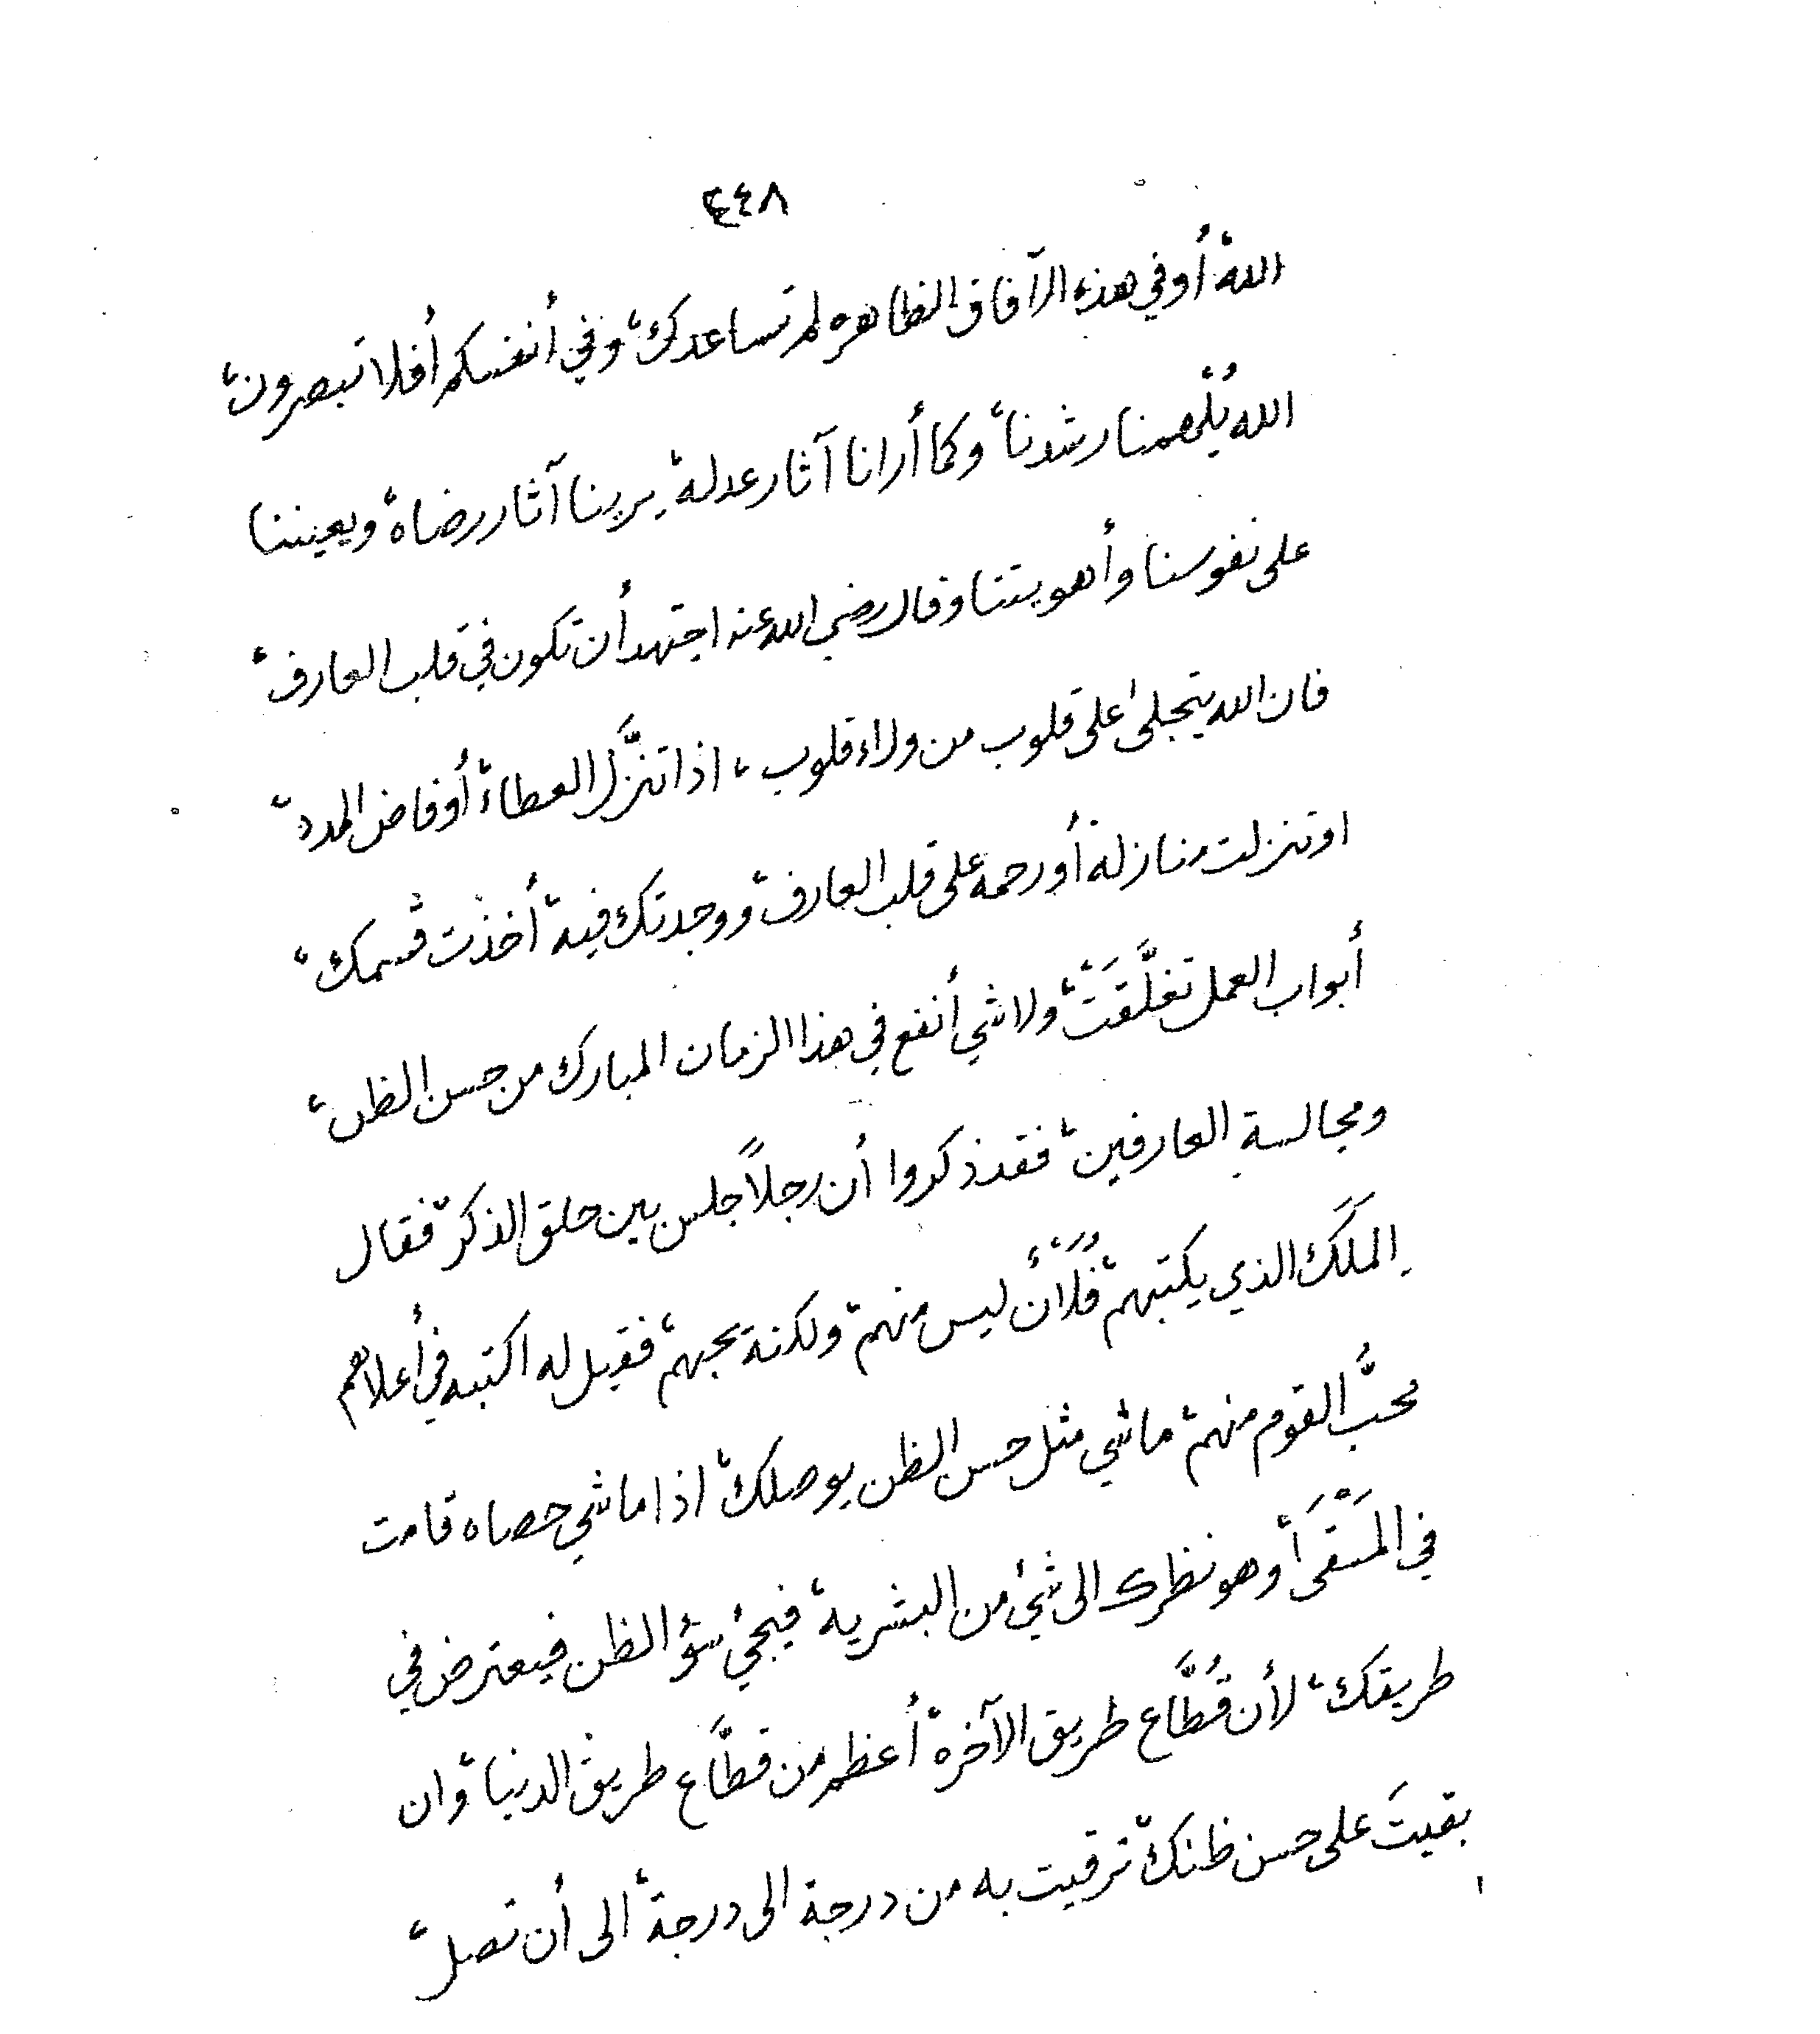 ٤٤٨
الله، أوفي هذه الآفاق الظاهره لم تساعدك، وفي أنفسكم أفلا تبصرون،
الله يُلْهمنا رشدنا، وكما أرانا آثار عدله، يرينا آثار رضاه، ويعيننا
على نفوسنا وأهويتنا وقال رضي الله عنه اجتهد أن تكون في قلب العارف،
فان الله يتجلى على قلوب من وراء قلوب، اذا تنزَّل العطاء، أوفاض المدد،
اوتنزلت منازلة أورحمه على قلب العارف، ووجدتك فيه، أخذْت قسمك،
أبواب العمل تغلَّقَتْ، ولا شي أنفع في هذا الزمان المبارك من حسن الظن،
ومجالسة العارفين، فقد ذكروا أن رجلاً جلس بين حلق الذكر، فقال
المَلَك الذي يكتبهم، فُلَانْ ليس منهم، ولكنه يحبهم، فقيل له اكتبه في أعلاهم
محبُّ القوم منهم، ماشي مثل حسن الظن يوصلك، اذا ماشي حصاه قامت
في المَسْقَى، وهو نظرك الى شيء من البشريه، فيجيء سؤ الظن فيعترض في
طريقك، لأن قُطَّاع طريق الآخره، أعظم من قطَّاع طريق الدنيا، وان
بقيتَ على حسن ظنك، ترقيت به من درجة الى درجة، الى أن تصل،